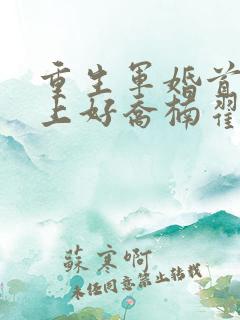 重生军婚首
上好乔楠翟
苏寒啊
未经同意禁止转载